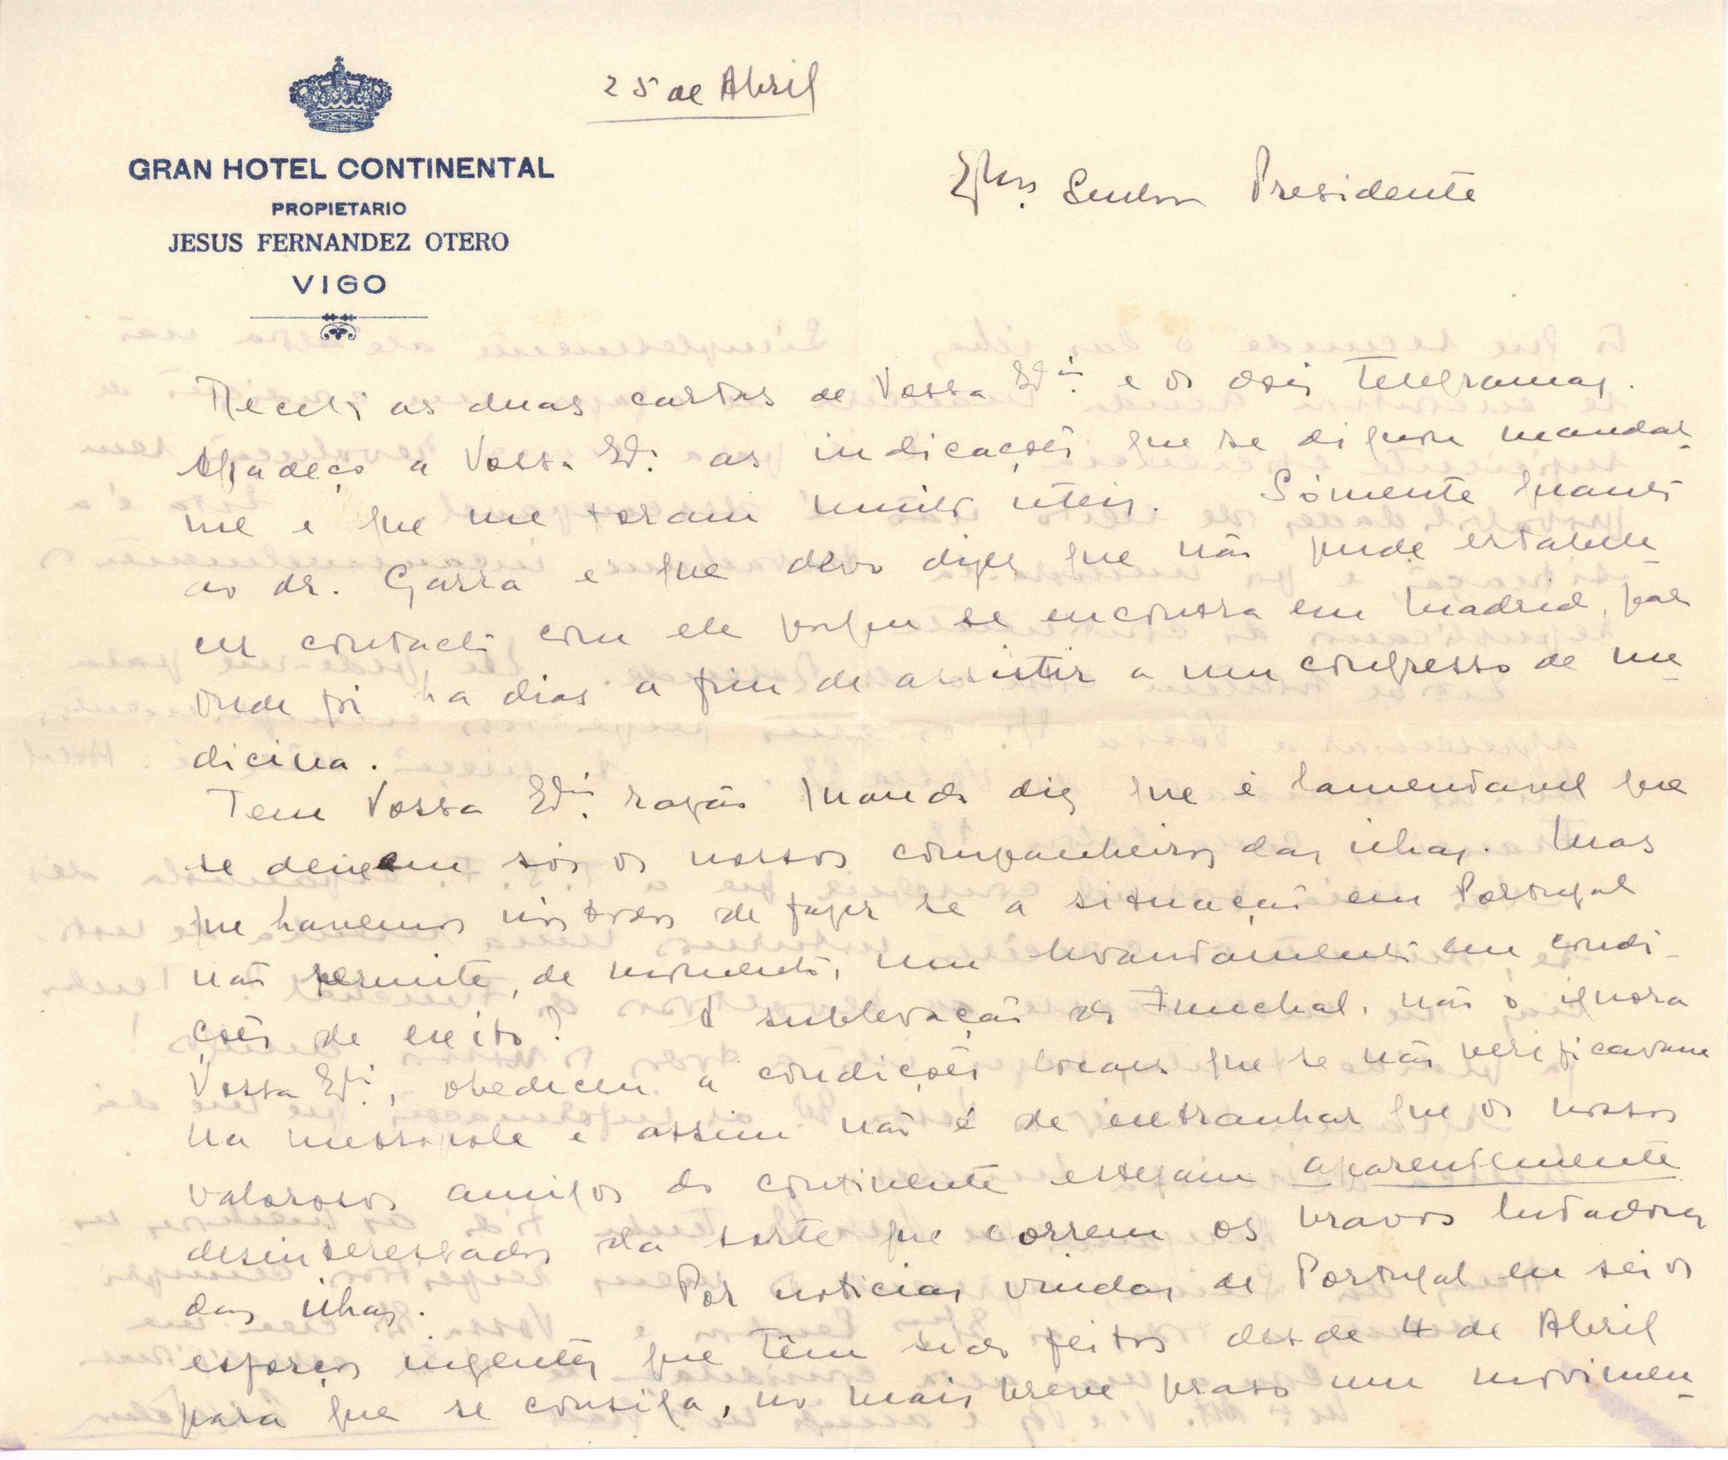 25 de Abril
GRAN HOTEL CONTINENTAL
PROPIETARIO
JESUS FERNANDEZ OTERO
VIGO
Exmo. Senhor Presidente
Recebi as duas cartas de Vossa Exia. e os dois telegramas.
Agradeço a Vossa Ex. as indicações que se dignou mandar-
me e que me foram muito uteis. Sómente quanto
ao dr. Garra e que devo dizer que não pude estabele-
cer contacto com ele porque se encontra em Madrid, para
onde foi ha dias a fim de assistir a um congresso de me-
dicina.
Tem Vossa Exia. razão quando diz que é lamentavel que
se deixem sós os nossos companheiros das ilhas. Mas
que havemos nós todos de fazer se a situação em Portugal
não permite, de momento, um levantamento em condi-
ções de exito? A sublevação do Funchal, não o ignora
Vossa Exi., obedeceu a condições locaes que se não verificavam
na metropole e assim não é de extranhar que os nossos
valorosos amigos do continente estejam aparentemente
desinteressados da sorte que correm os bravos lutadores
das ilhas. Por noticias vindas de Portugal eu sei os
esforços ingentes que têm sido feitos desde 4 de Abril
para que se consiga, no mais breve praso um movimen-